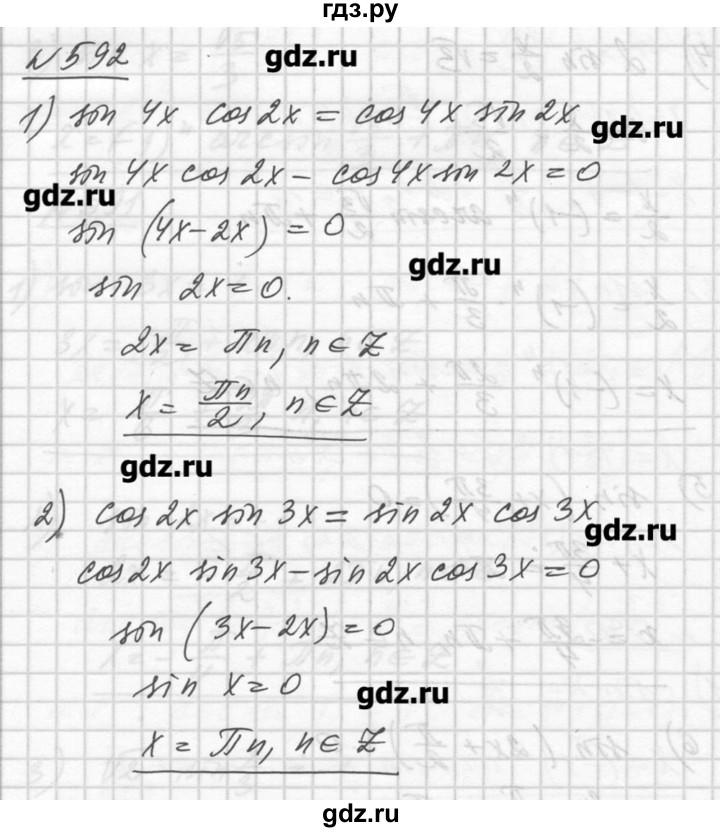 гдз.ру
№592
gdz.ru
1) sin 4x cos 2x = cos 4x sin 2x
gdz.ru
sin 4x cos 2x − cos 4x sin 2x = 0
gdz.ru
sin (4x−2x) = 0
gdz.ru
sin 2x = 0.
2x = πn, n ∈ Z
x = πn/2, n ∈ Z
gdz.ru
2) cos 2x sin 3x = sin 2x cos 3x
gdz.ru
cos 2x sin 3x − sin 2x cos 3x = 0
sin (3x−2x) = 0
sin x = 0
gdz.ru
x = πn, n ∈ Z
gdz.ru